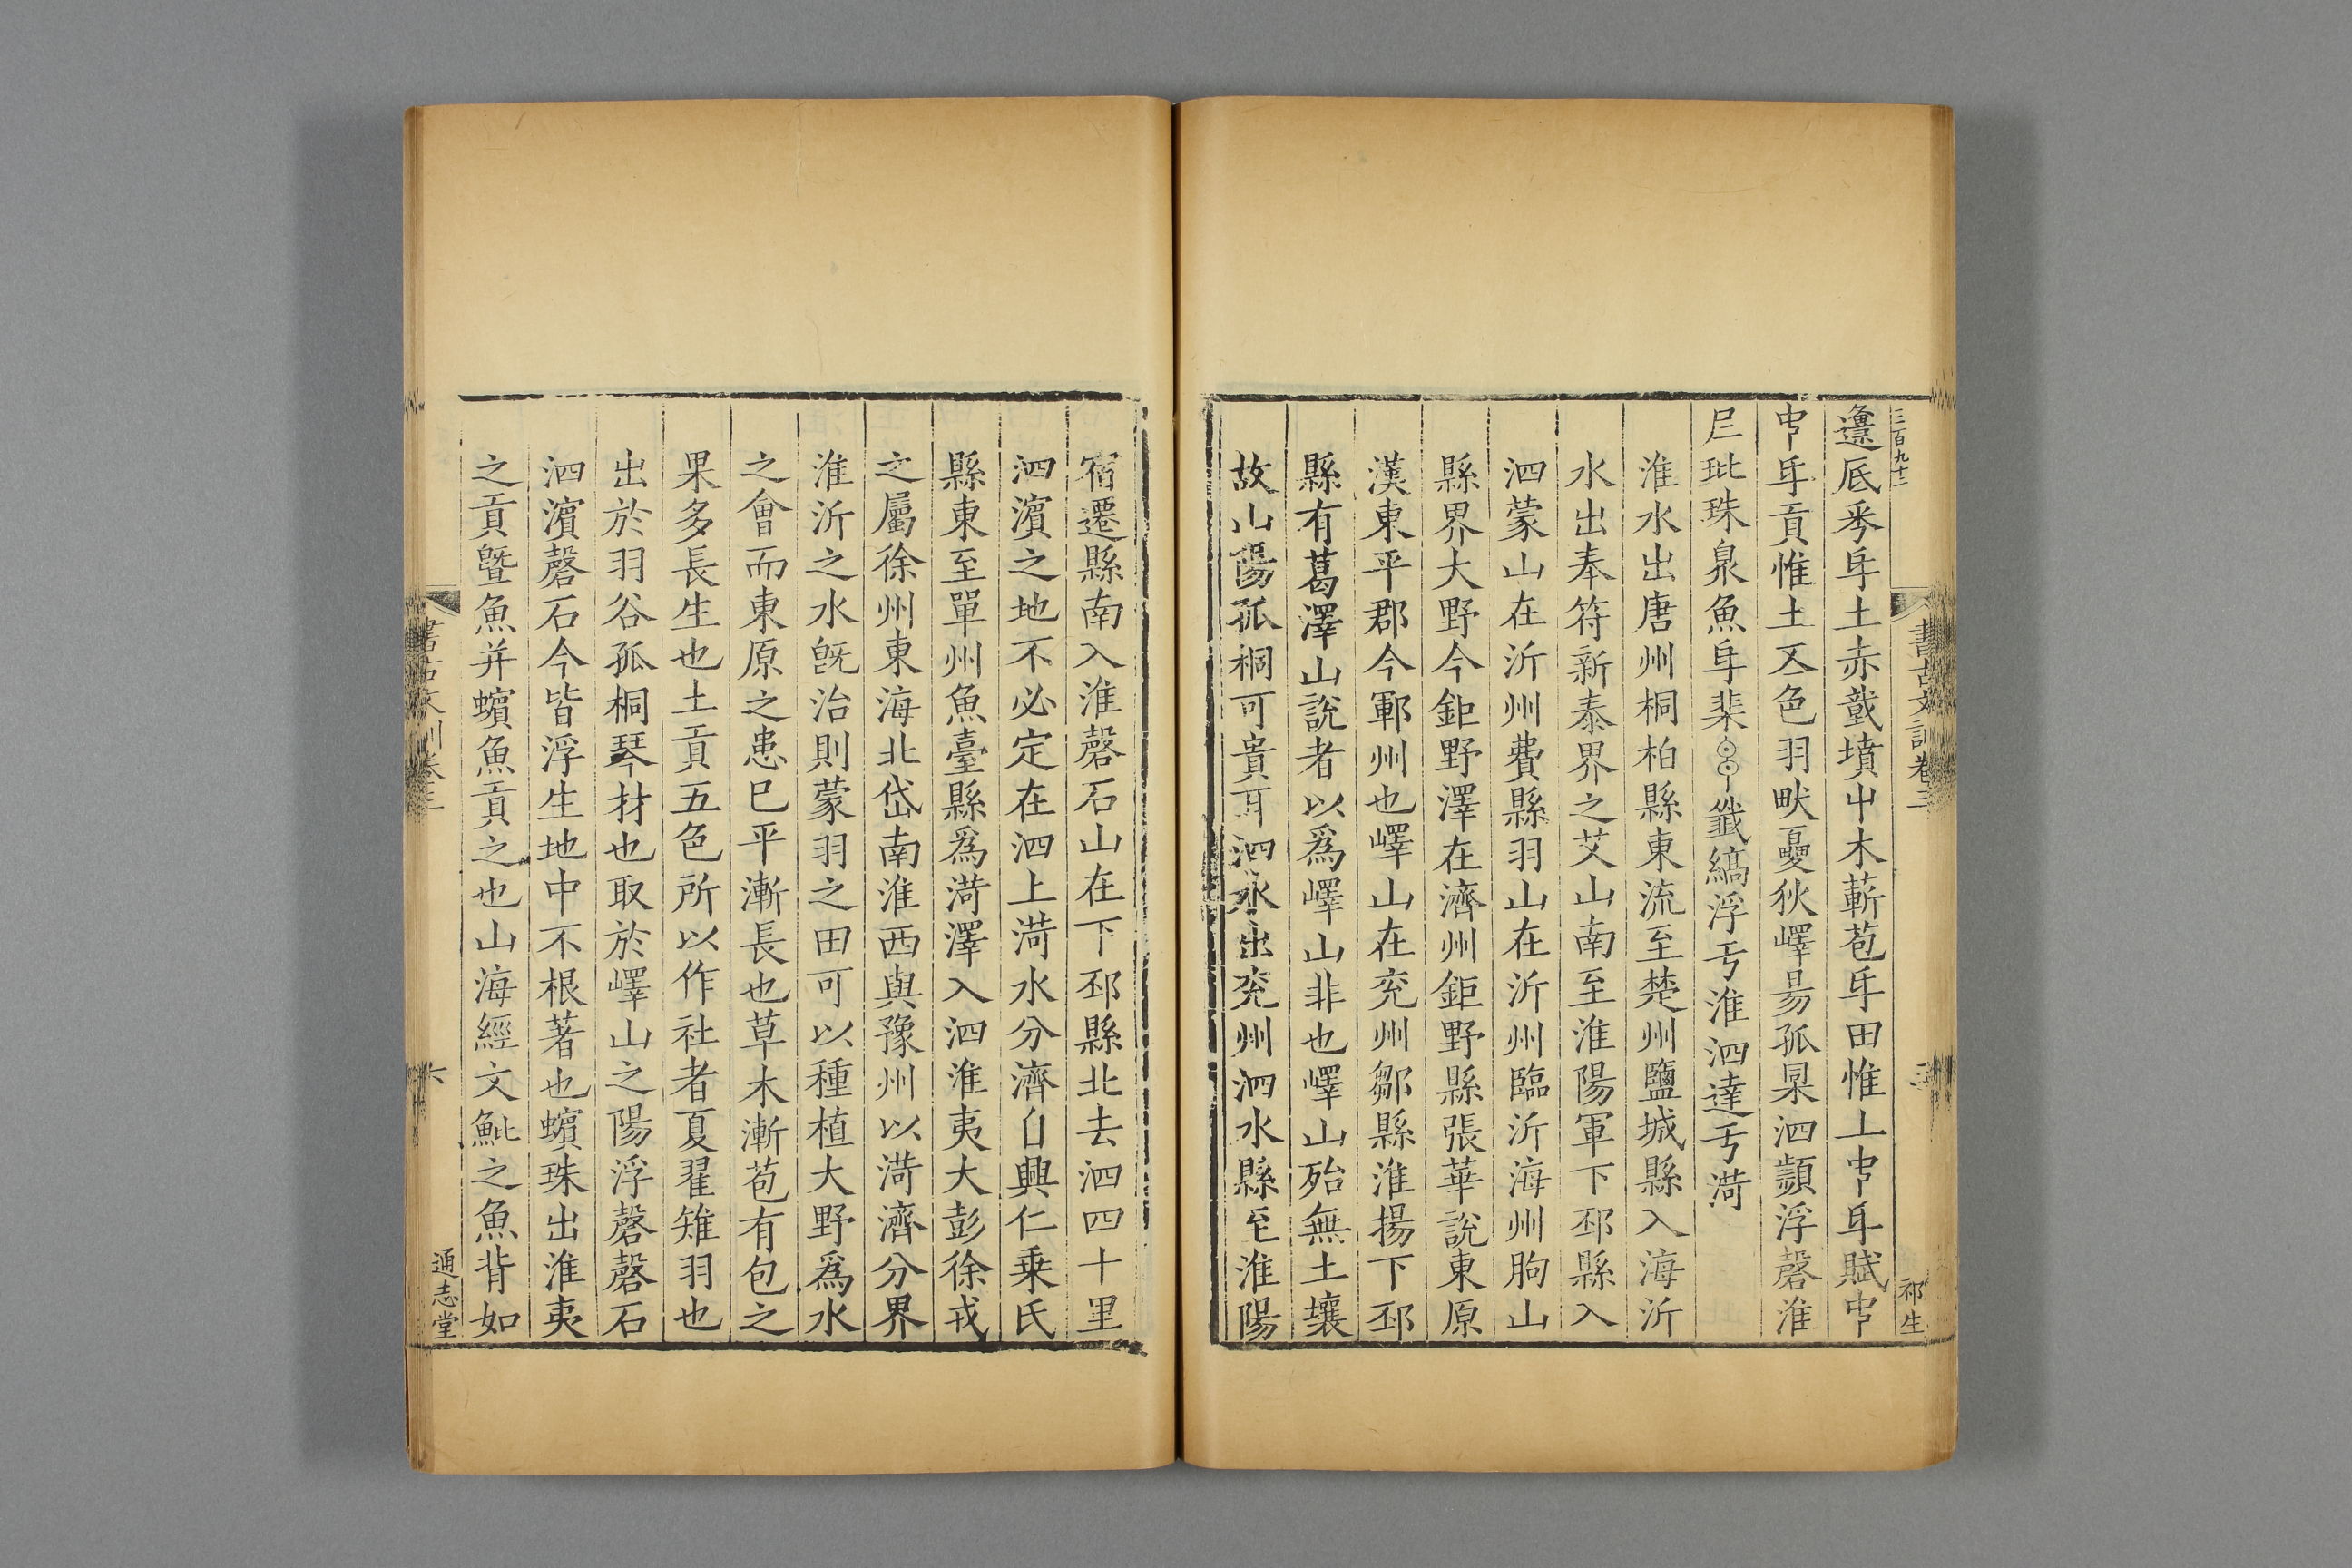 三百九十二
書古文訓卷三
三
祁生
邍厎秊𠂹土赤戠墳屮木蔪苞𠂹田惟丄𠁩𠂹賦𠁩
𠁩𠂹貢惟土𠄡色羽畎𡕾狄嶧昜孤杲泗顮浮磬淮
𡰥玭珠臮魚𠂹棐纖縞浮亏淮泗達亏菏
淮水出唐州桐柏縣東流至楚州鹽城縣入海沂
水出奉符新泰界之艾山南至淮陽軍下邳縣入
泗蒙山在沂州費縣羽山在沂州臨沂海州朐山
縣界大野今鉅野澤在濟州鉅野縣張華說東原
漢東平郡今鄆州也嶧山在兖州鄒縣淮揚下邳
縣有葛澤山說者以爲嶧山非也嶧山殆無土壤
故山陽孤桐可貴耳泗水出兖州泗水縣至淮陽
宿遷縣南入淮磬石山在下邳縣北去泗四十里
泗濵之地不必定在泗上菏水分濟自興仁乗氏
縣東至單州魚臺縣爲菏澤入泗淮夷大彭徐戎
之屬徐州東海北岱南淮西與豫州以菏濟分界
淮沂之水旣治則蒙羽之田可以種植大野爲水
之會而東原之患已平漸長也草木漸苞有包之
果多長生也土貢五色所以作社者夏翟雉羽也
出於羽谷孤桐琴材也取於嶧山之陽浮磬磬石
泗濵磬石今皆浮生地中不根著也蠙珠出淮夷
之貢曁魚并蠙魚貢之也山海經文魮之魚背如
書古文訓卷三
六
通志堂